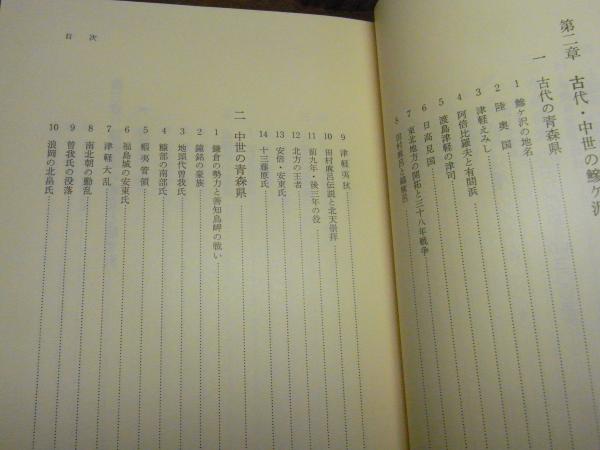 第二章 古代・中世の鰺ヶ沢
一 古代の青森県
1 鰺ヶ沢の地名
2 陸奥国
3 津軽えみし
4 阿倍比羅夫と有間浜
5 渡島津軽の津司
6 日高見国
7 東北地方の開拓と三十八年戦争
8 田村麻呂と
目次
9 津軽夷狄
10 田村麻呂伝説と北天崇拝
11 前九年・後三年の役
12 北方の王者
13 安倍・安東氏
14 十三藤原氏
二 中世の青森県
1 鎌倉の勢力と善知鳥岬の戦い
2 鐘銘の豪族
3 地頭代曽我氏
4 糠部の南部氏
5 蝦夷管領
6 福島城の安東氏
7 津軽大乱
8 南北朝の動乱
9 曽我氏の没落
10 浪岡の北畠氏